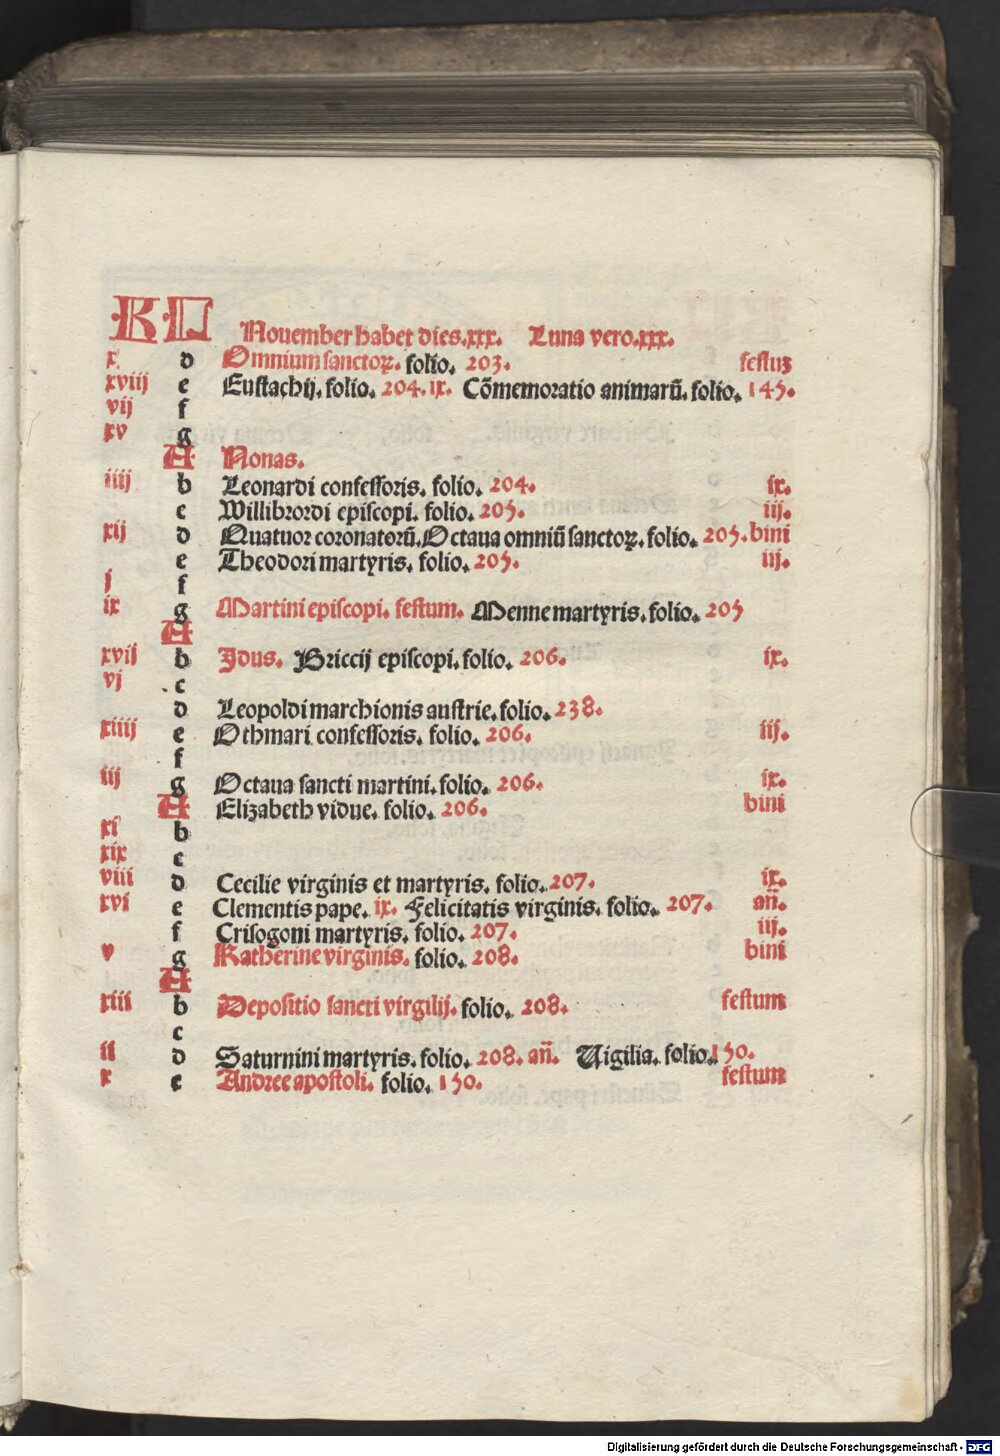 KL November habet dies.xxx. Luna vero.xxx.
x d Omnium sanctoꝝ. folio. 203. festuʒ
xviij e Eustachij. folio. 204. ix. Cōmemoratio animarū. folio. 145.
vij f
xv g
A Nonas.
iiij b Leonardi confessoris. folio. 204. ix.
c Willibrordi episcopi. folio. 205. iij.
xij d Quatuor coronatorū. Octaua omniū sanctoꝝ. folio. 205. bini
e Theodori martyris. folio. 205. iij.
j f
ix g Martini episcopi. festum. Menne martyris. folio. 205
A
xvij b Idus. Briccij episcopi. folio. 206. ix.
vj c
d Leopoldi marchionis austrie. folio. 238.
xiiij e Othmari confessoris. folio. 206. iij.
f
iij g Octaua sancti martini. folio. 206. ix.
A Elizabeth vidue. folio. 206. bini
xi b
xix c
viii d Cecilie virginis et martyris. folio. 207. ix.
xvi e Clementis pape. ix. Felicitatis virginis. folio. 207. añ.
f Crisogoni martyris. folio. 207. iij.
v g Katherine virginis. folio. 208. bini
A
xiii b Depositio sancti virgilij. folio. 208. festum
c
ii d Saturnini martyris. folio. 208. añ. Uigilia. folio. 150.
x e Andree apostoli. folio. 150. festum
Digitalisierung gefördert durch die Deutsche Forschungsgemeinschaft - DFG